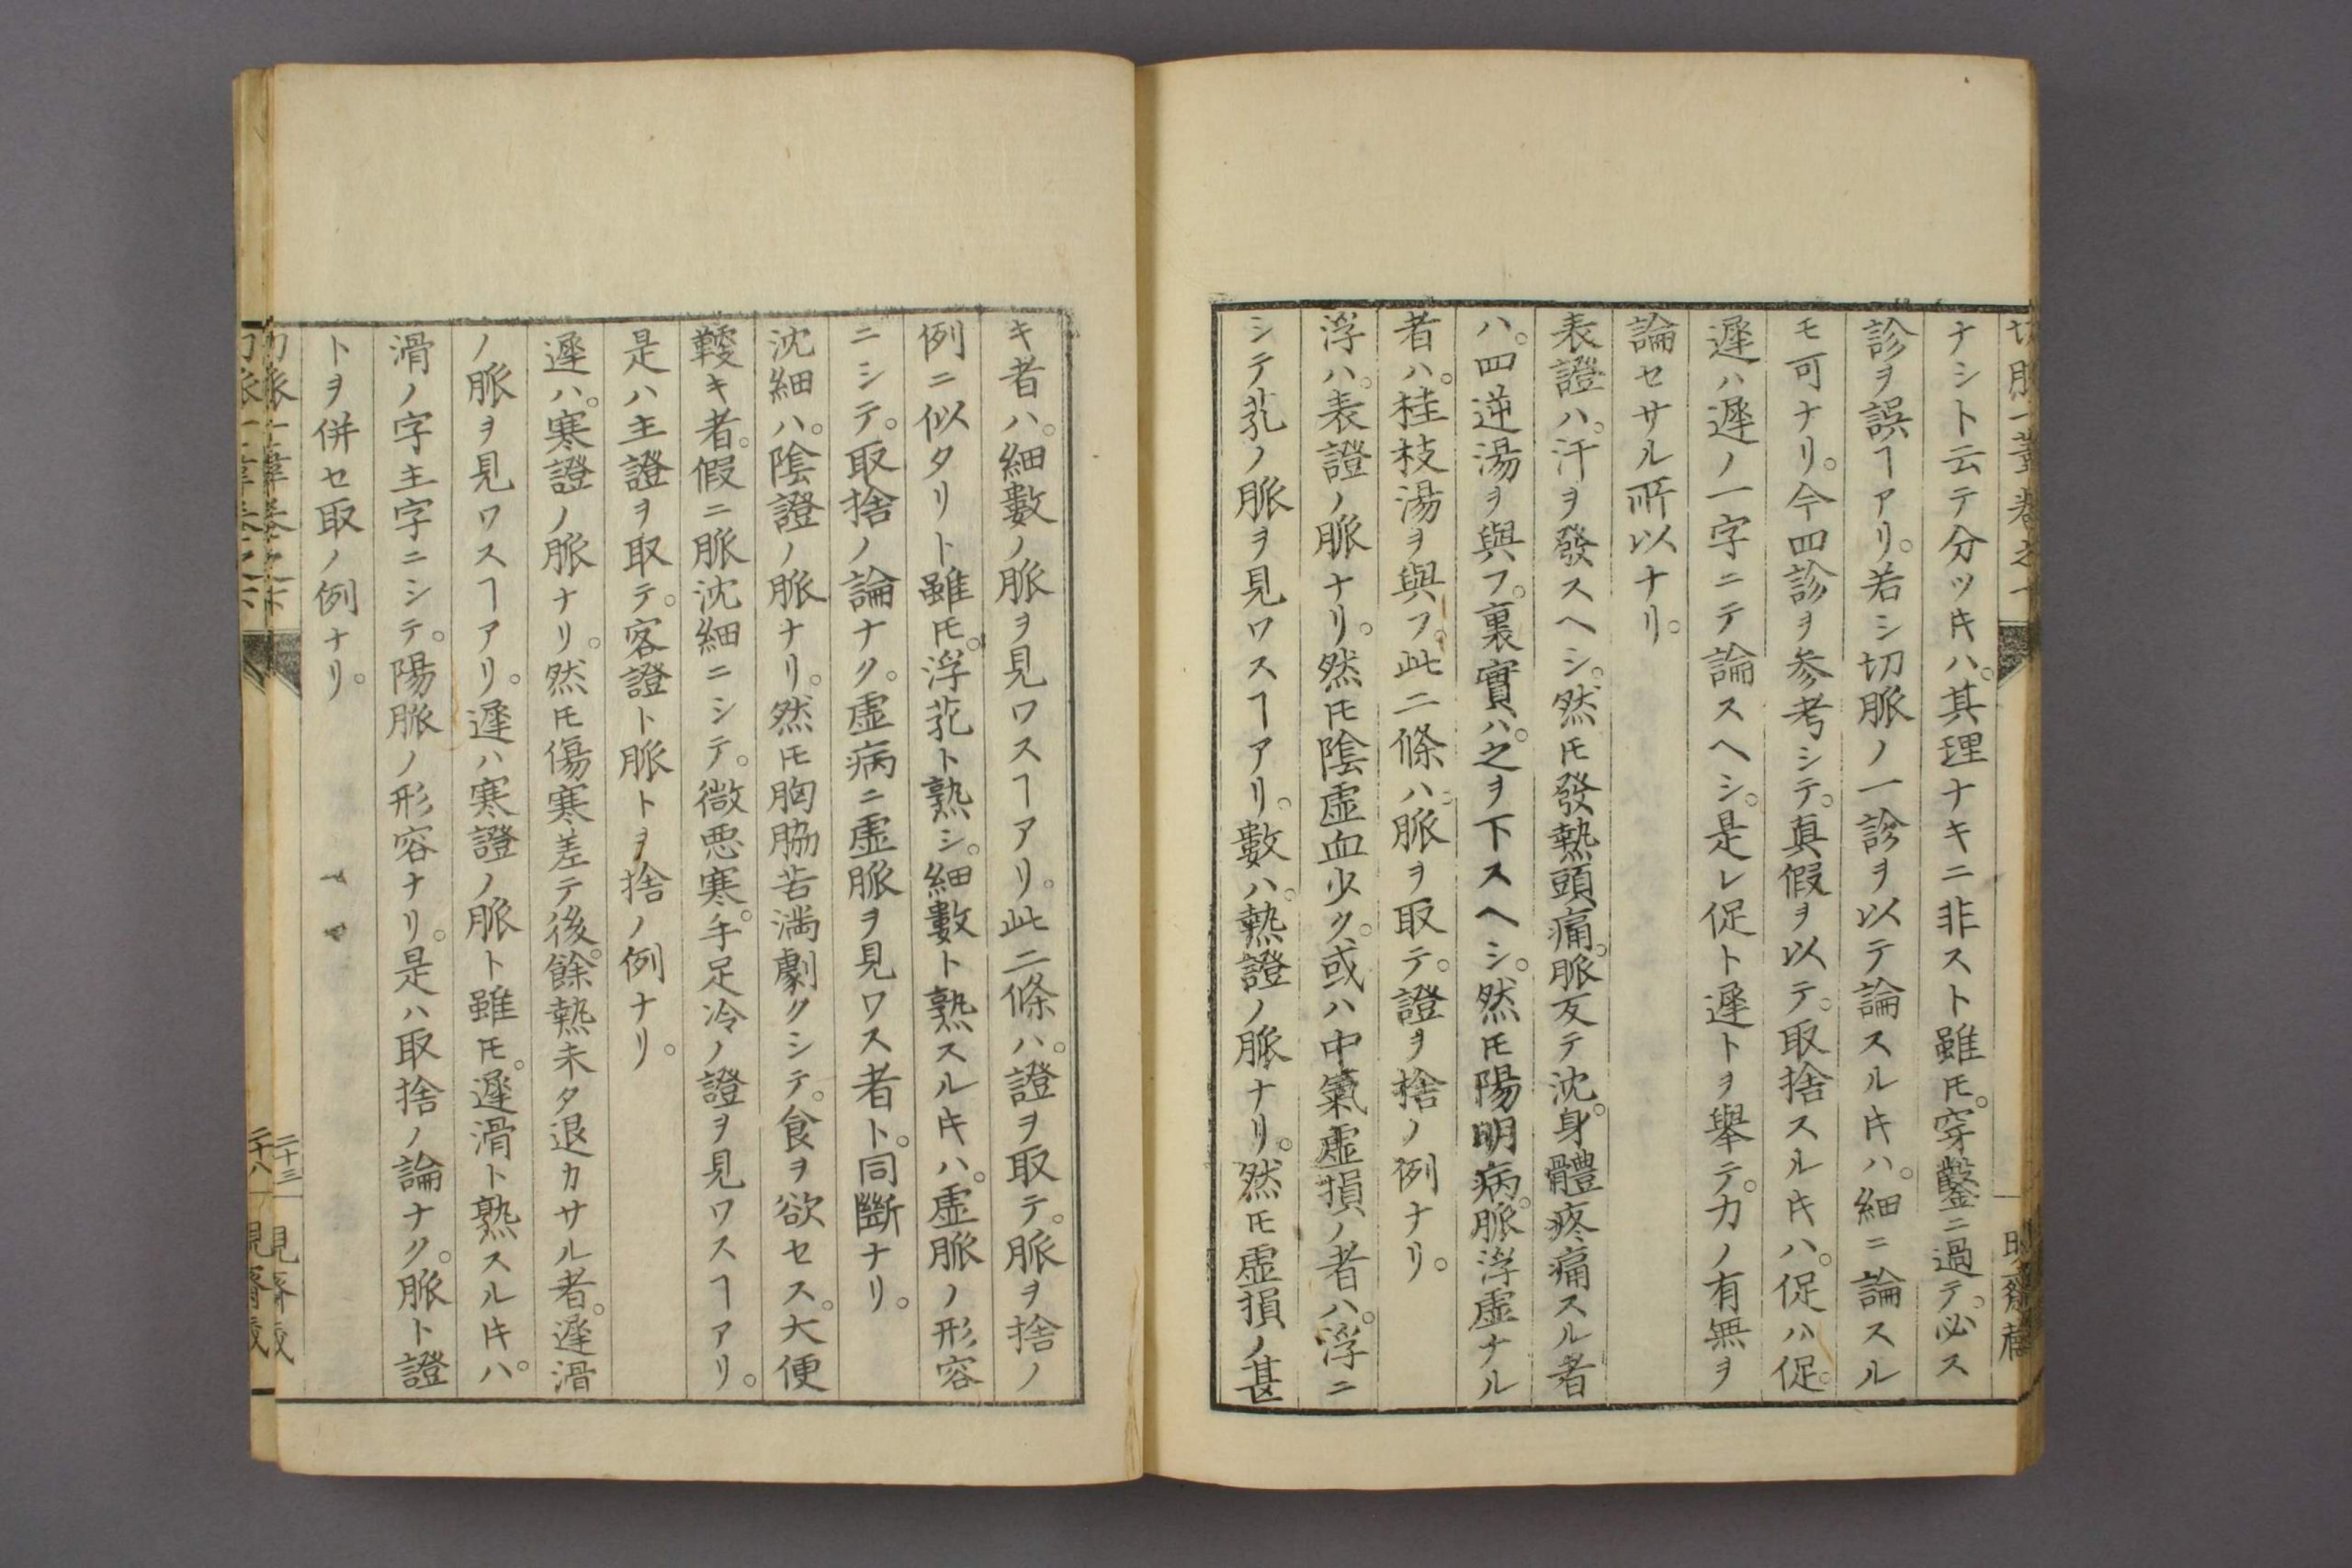 ナシト云テ分ツキハ。其理ナキニ非スト雖𪜈。穿鑿ニ過テ。必ス
診ヲ誤ヿアリ。若シ切脈ノ一診ヲ以テ論スルキハ。細ニ論スル
モ可ナリ。今四診ヲ参考シテ。真假ヲ以テ。取捨スルキハ。促ハ促。
遲ハ遲ノ一字ニテ論スヘシ。是レ促ト遲トヲ擧テ。力ノ有無ヲ
論セサル所以ナリ。
表證ハ。汗ヲ發スヘシ。然𪜈發熱頭痛。脈反テ沈。身體疼痛スル者
ハ。四逆湯ヲ與フ。裏實ハ。之ヲ下スヘシ。然𪜈陽明病。脈浮虚ナル
者ハ。桂枝湯ヲ與フ。此二條ハ脈ヲ取テ。證ヲ捨ノ例ナリ。
浮ハ。表證ノ脈ナリ。然𪜈陰虚血少ク。或ハ中氣虚損ノ者ハ。浮ニ
シテ芤ノ脈ヲ見ワスヿアリ。數ハ。熱證ノ脈ナリ。然𪜈虚損ノ甚
キ者ハ。細數ノ脈ヲ見ワスヿアリ。此二條ハ。證ヲ取テ。脈ヲ捨ノ
例ニ似タリト雖𪜈。浮芤ト熟シ。細數ト熟スルキハ。虚脈ノ形容
ニシテ。取捨ノ論ナク。虚病ニ虚脈ヲ見ワス者ト。同斷ナリ。
沈細ハ。陰證ノ脈ナリ。然𪜈胸脇苦満劇クシテ。食ヲ欲セス。大便
鞕キ者。假ニ脈沈細ニシテ。微悪寒。手足冷ノ證ヲ見ワスヿアリ。
是ハ主證ヲ取テ。客證ト脈トヲ捨ノ例ナリ。
遲ハ。寒證ノ脈ナリ。然𪜈傷寒差テ後。餘熱未タ退カサル者。遲滑
ノ脈ヲ見ワスヿアリ。遲ハ寒證ノ脈ト雖𪜈。遲滑ト熟スルキハ。
滑ノ字主字ニシテ。陽脈ノ形容ナリ。是ハ取捨ノ論ナク。脈ト證
トヲ併セ取ノ例ナリ。
二十三